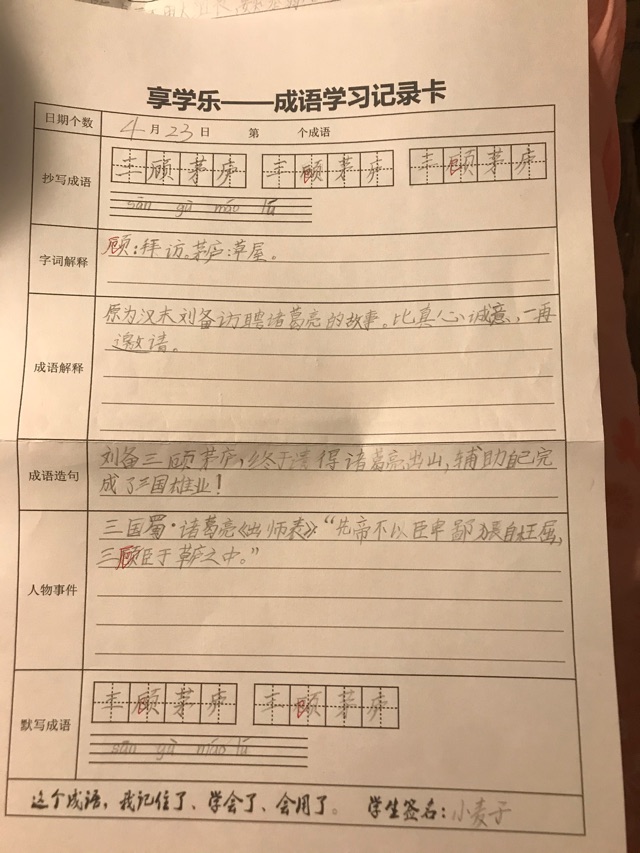 享学乐——成语学习记录卡
日期个数 4月23日 第 个成语
抄写成语 三顾茅庐 三顾茅庐 三顾茅庐
sān gù máo lú
字词解释 顾:拜访。茅庐:草屋。
成语解释 原为汉末刘备访聘诸葛亮的故事。比真心诚意,一再
邀请。
成语造句 刘备三顾茅庐,终于请得诸葛亮出山,辅助自己完
成了三国雄业!
人物事件 三国蜀·诸葛亮《出师表》:“先帝不以臣卑鄙,猥自枉屈,
三顾臣于草庐之中。”
默写成语 三顾茅庐 三顾茅庐
sān gù máo lú
这个成语,我记住了、学会了、会用了。 学生签名:小麦子